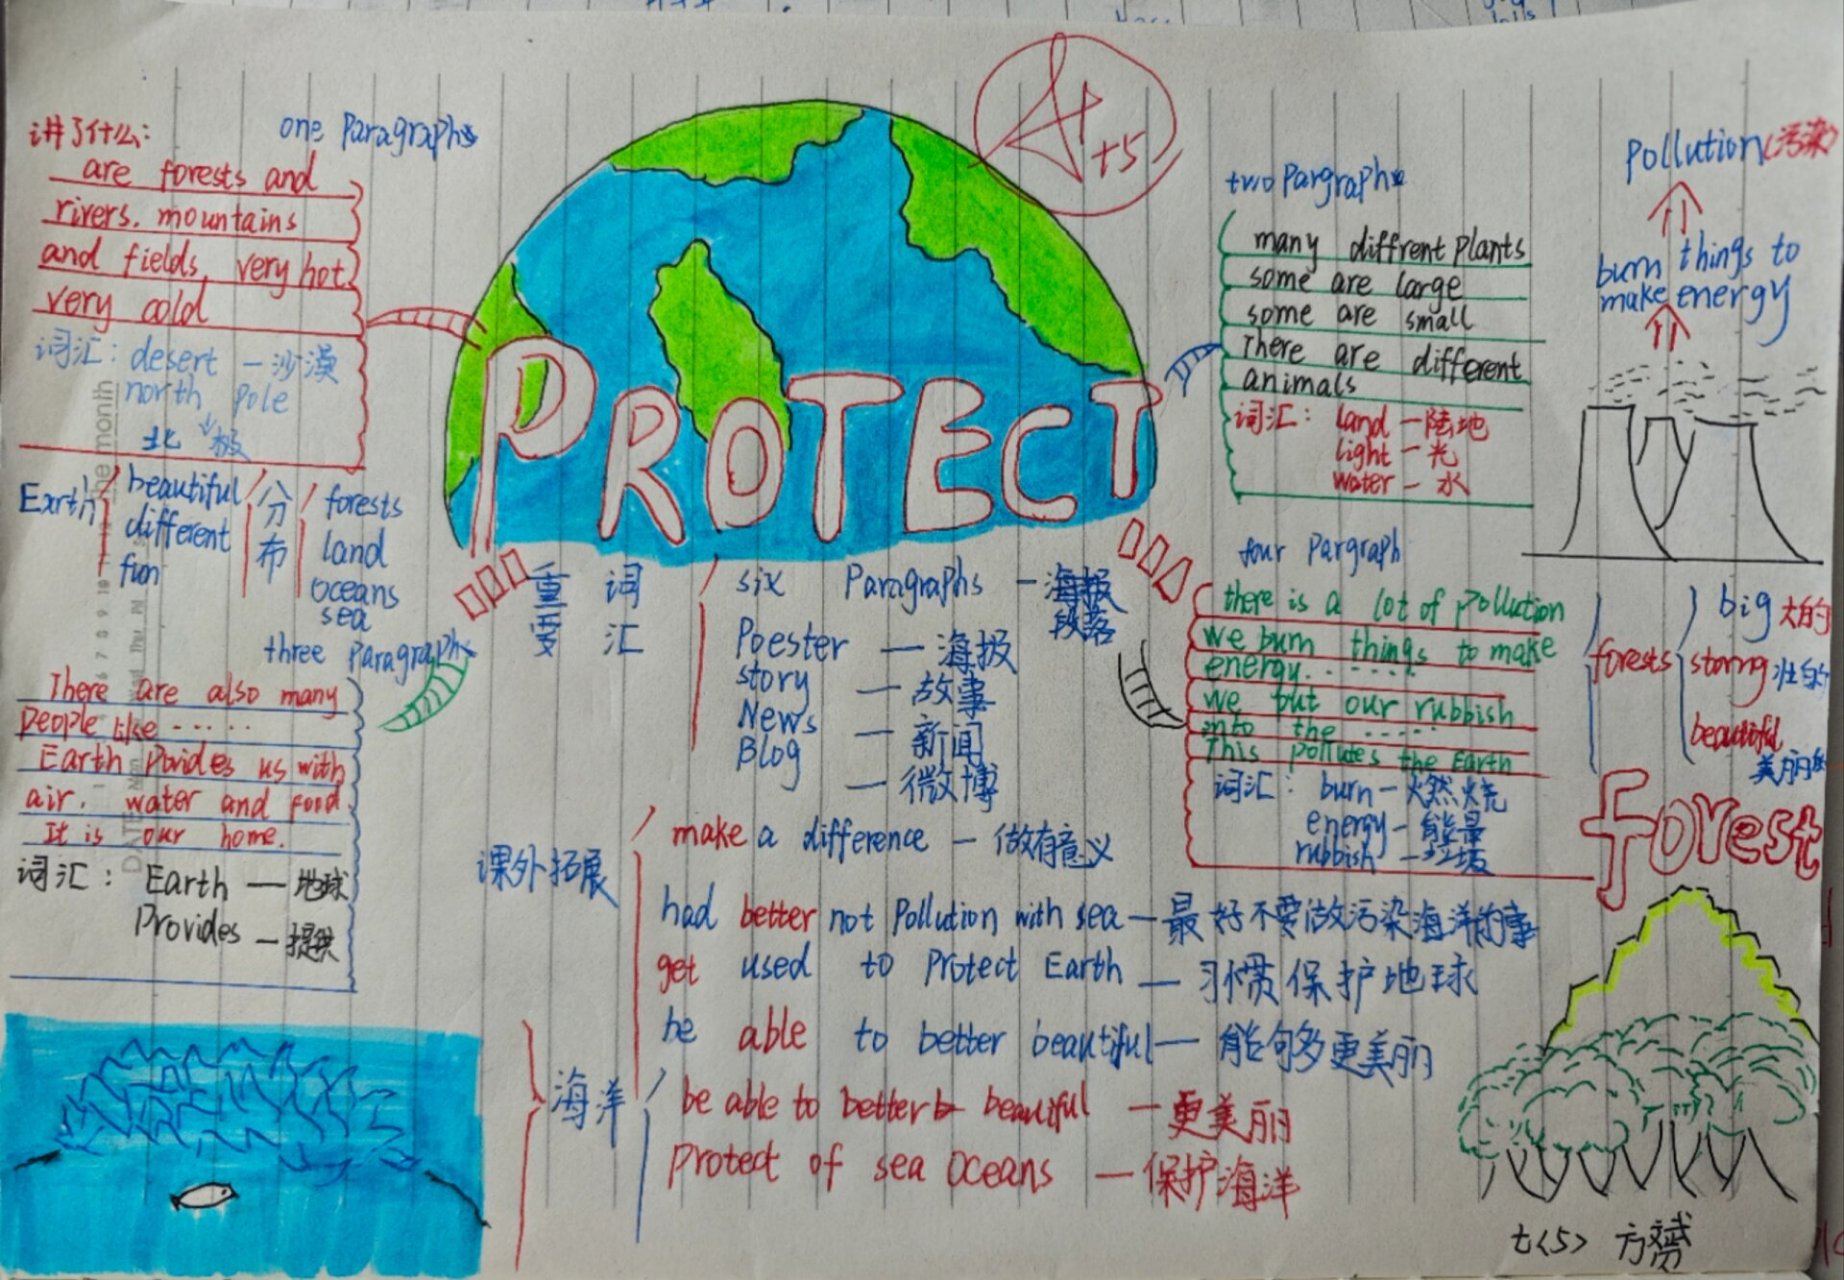 A+
+5
讲了什么:
one Paragraphs
are forests and
rivers. mountains
and fields, very hot.
very cold
词汇: desert — 沙漠
north Pole
北极
Earth
beautiful
different
fun
分布
forests
land
oceans
sea
three Paragraphs
There are also many
people like ······
Earth Povides us with
air. water and Food.
It is our home.
词汇: Earth — 地球
Provides — 提供
PROTECT
重要 词汇
six Paragraphs — 海报
段落
Poester — 海报
story — 故事
News — 新闻
Blog — 微博
课外拓展
make a difference — 做有意义
had better not Pollution with sea — 最好不要做污染海洋的事
get used to Protect Earth — 习惯保护地球
be able to better beautiful — 能够多更美丽
海洋
be able to better beautiful — 更美丽
Protect of sea oceans — 保护海洋
two Pargraphs
many diffrent plants
some are large
some are small
There are different
animals
词汇: land — 陆地
light — 光
water — 水
Pollution (污染)
burn things to
make energy
four Pargraph
there is a lot of pollution
we burn things to make
energy. ······
we but our rubbish
into the ······
This pollutes the Earth
词汇: burn — 燃烧
energy — 能量
rubbish — 垃圾
forests
big 大的
storng 壮的
beautiful
美丽的
forest
七<5>
DATE
the month